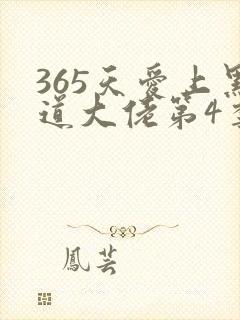 365天爱上黑
道大佬第4季
鳳芸